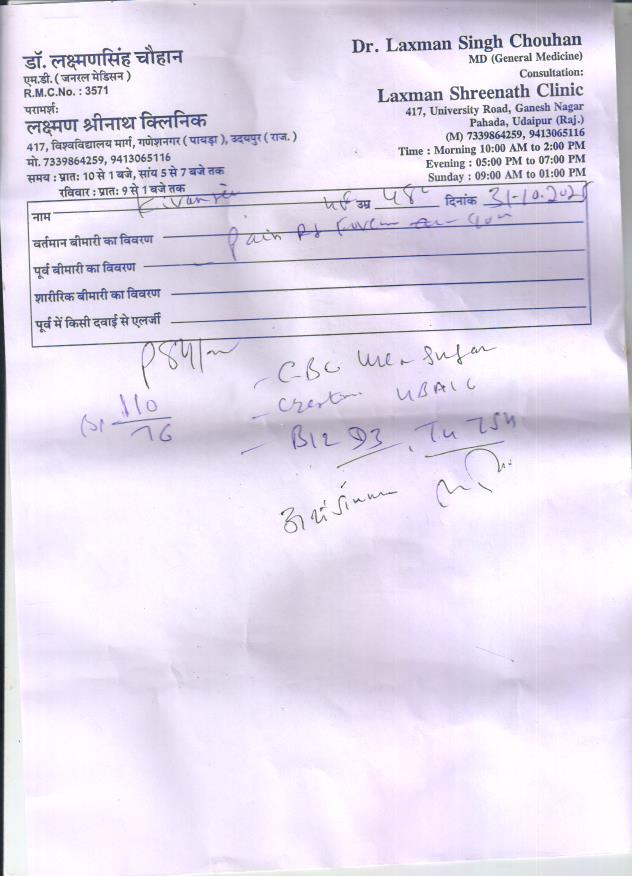 डॉ. लक्ष्मणसिंह चौहान
एम.डी. ( जनरल मेडिसन )
R.M.C.No. : 3571
परामर्श:
लक्ष्मण श्रीनाथ क्लिनिक
417, विश्वविद्यालय मार्ग, गणेशनगर ( पायड़ा ), उदयपुर ( राज. )
मो. 7339864259, 9413065116
समय : प्रातः 10 से 1 बजे, सांय 5 से 7 बजे तक
रविवार : प्रातः 9 से 1 बजे तक
Dr. Laxman Singh Chouhan
MD (General Medicine)
Consultation:
Laxman Shreenath Clinic
417, University Road, Ganesh Nagar
Pahada, Udaipur (Raj.)
(M) 7339864259, 9413065116
Time : Morning 10:00 AM to 2:00 PM
Evening : 05:00 PM to 07:00 PM
Sunday : 09:00 AM to 01:00 PM
नाम उम्र 48 दिनांक 31-10.2025
वर्तमान बीमारी का विवरण Pain
पूर्व बीमारी का विवरण
शारीरिक बीमारी का विवरण
पूर्व में किसी दवाई से एलर्जी
P 84/m
110
76
- CBC Urea Sugar
- HBA1C
- B12 D3,